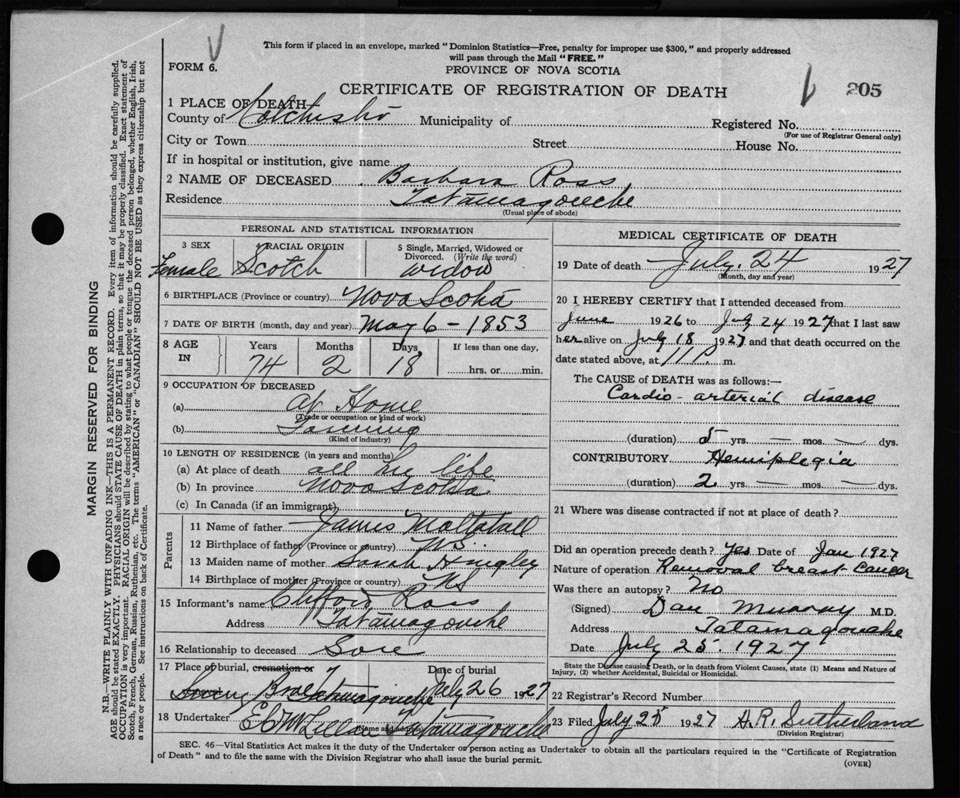 This form if placed in an envelope, marked "Dominion Statistics—Free, penalty for improper use $300," and properly addressed
will pass through the Mail "FREE."
FORM 6.
PROVINCE OF NOVA SCOTIA
CERTIFICATE OF REGISTRATION OF DEATH
205
1 PLACE OF DEATH
County of Colchester Municipality of Registered No.
(For use of Registrar General only)
City or Town Street House No.
If in hospital or institution, give name
2 NAME OF DECEASED Barbara Ross
Residence Tatamagouche
(Usual place of abode)
PERSONAL AND STATISTICAL INFORMATION
3 SEX 4 RACIAL ORIGIN 5 Single, Married, Widowed or Divorced. (Write the word)
Female Scotch widow
6 BIRTHPLACE (Province or country) Nova Scotia
7 DATE OF BIRTH (month, day and year) May 6 - 1853
8 AGE IN Years Months Days If less than one day,
74 2 18 hrs. or min.
9 OCCUPATION OF DECEASED
(a) At Home
(Trade or occupation or kind of work)
(b) Farming
(Kind of industry)
10 LENGTH OF RESIDENCE (in years and months)
(a) At place of death all her life
(b) In province Nova Scotia
(c) In Canada (if an immigrant)
Parents
11 Name of father James Mattatall
12 Birthplace of father (Province or country) N.S.
13 Maiden name of mother Sarah
14 Birthplace of mother (Province or country) N.S
15 Informant's name Clifford Ross
Address Tatamagouche
16 Relationship to deceased Son
17 Place of burial, cremation or Date of burial
Brae Tatamagouche July 26 1927
18 Undertaker Tatamagouche
MEDICAL CERTIFICATE OF DEATH
19 Date of death July. 24 1927
(Month, day and year)
20 I HEREBY CERTIFY that I attended deceased from
June 1926 to July 24 1927 that I last saw
her alive on July 18 1927 and that death occurred on the
date stated above, at 11 P. m.
The CAUSE of DEATH was as follows:—
Cardio-arterial disease
(duration) 5 yrs. — mos. — dys.
CONTRIBUTORY Hemiplegia
(duration) 2 yrs. — mos. — dys.
21 Where was disease contracted if not at place of death?
Did an operation precede death? Yes Date of Jan 1927
Nature of operation Removal breast Cancer
Was there an autopsy? No
(Signed) Dan Murray M.D.
Address Tatamagouche
Date July 25 1927
State the Disease causing Death, or in death from Violent Causes, state (1) Means and Nature of
Injury, (2) whether Accidental, Suicidal or Homicidal.
22 Registrar's Record Number
23 Filed July 25 1927 H.R. Sutherland
(Division Registrar)
SEC. 46—Vital Statistics Act makes it the duty of the Undertaker or person acting as Undertaker to obtain all the particulars required in the "Certificate of Registration
of Death" and to file the same with the Division Registrar who shall issue the burial permit.
(OVER)
MARGIN RESERVED FOR BINDING
N.B.—WRITE PLAINLY WITH UNFADING INK—THIS IS A PERMANENT RECORD. Every item of information should be carefully supplied.
AGE should be stated EXACTLY. PHYSICIANS should STATE CAUSE OF DEATH in plain terms, so that it may be properly classified. Exact statement of
OCCUPATION is very important. RACIAL ORIGIN will be described by stating to what people or tongue the deceased person belonged, whether English, Irish,
Scotch, French, German, Russian, Ruthenian, etc. The terms "AMERICAN" or "CANADIAN" SHOULD NOT BE USED as they express citizenship but not
a race or people. See instructions on back of Certificate.